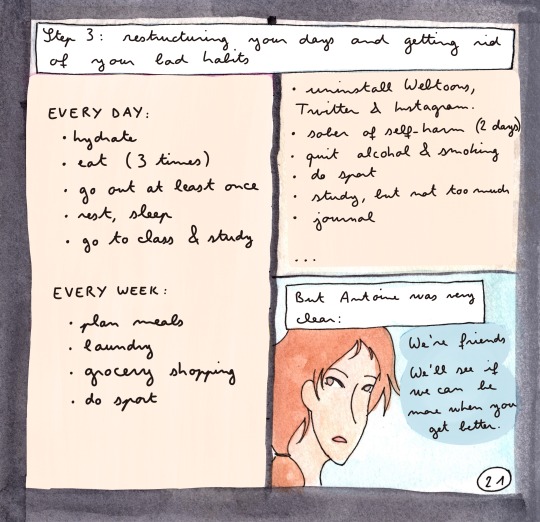 Step 3: restructuring your days and getting rid
of your bad habits
EVERY DAY:
• hydrate
• eat (3 times)
• go out at least once
• rest, sleep
• go to class & study
EVERY WEEK:
• plan meals
• laundry
• grocery shopping
• do sport
• uninstall Webtoons,
Twitter & Instagram.
• sober of self-harm (2 days)
• quit alcohol & smoking
• do sport
• study, but not too much
• journal
...
But Antoine was very
clear:
We're friends
We'll see if
we can be
more when you
get better.
21